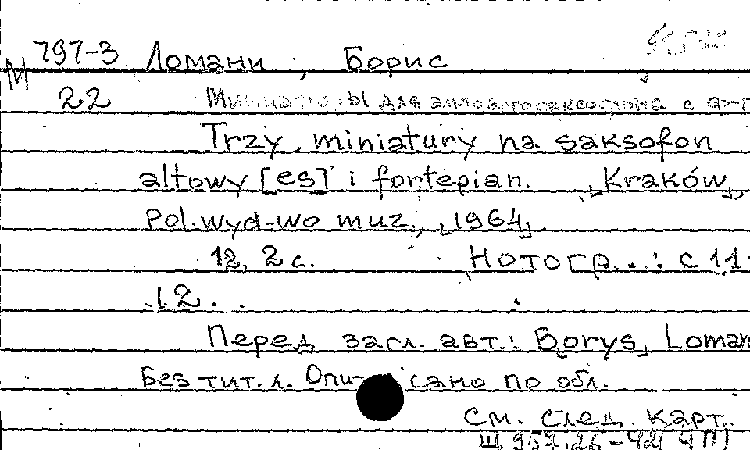 М 797-3 Ломани, Борис
22 Миниатюры для альтового саксофона с ф-п
Trzy miniatury na saksofon
altowy [es] i fortepian. Kraków,
Pol. wyd-wo muz., 1964.
12, 2 с. Нотогр...: с 11-
12.
Перед загл. авт.: Borys Loman
Без тит. л. Описано по обл.
См. след. карт.